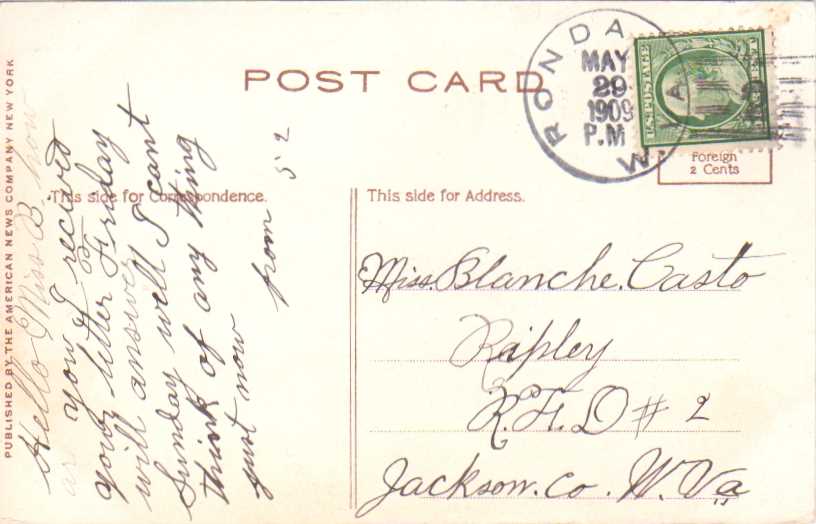 POST CARD
RONDA W. VA.
MAY
29
1909
P.M
U.S. POSTAGE
Foreign
2 Cents
This side for Correspondence.
This side for Address.
PUBLISHED BY THE AMERICAN NEWS COMPANY NEW YORK
Hello Miss B. how
are you I recived
your letter Friday
will answer
Sunday well I cant
think of any thing
just now
from 52
Miss. Blanche. Casto
Ripley
R.F.D # 2
Jackson. Co. W. Va